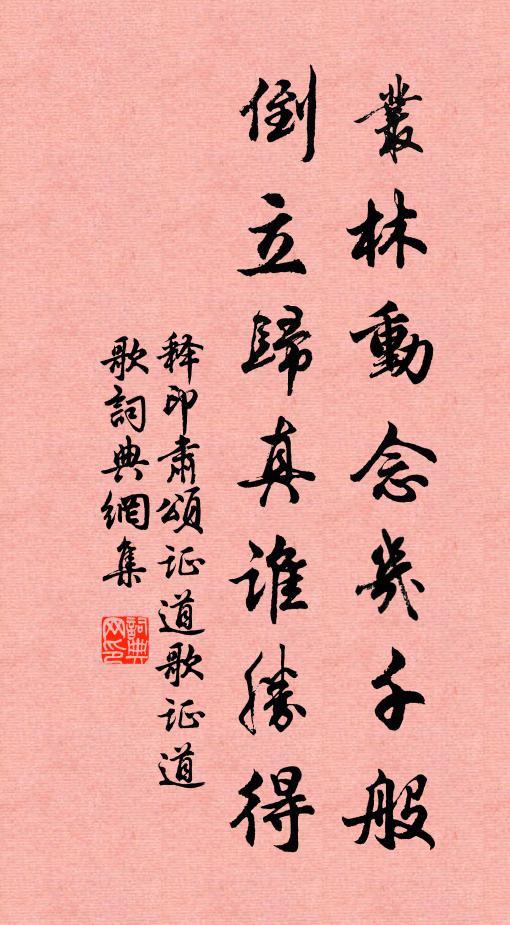 叢林動念幾千般
倒立歸真誰勝得
釋印肅頌证道歌证道
歌詞典網集
詞典網印